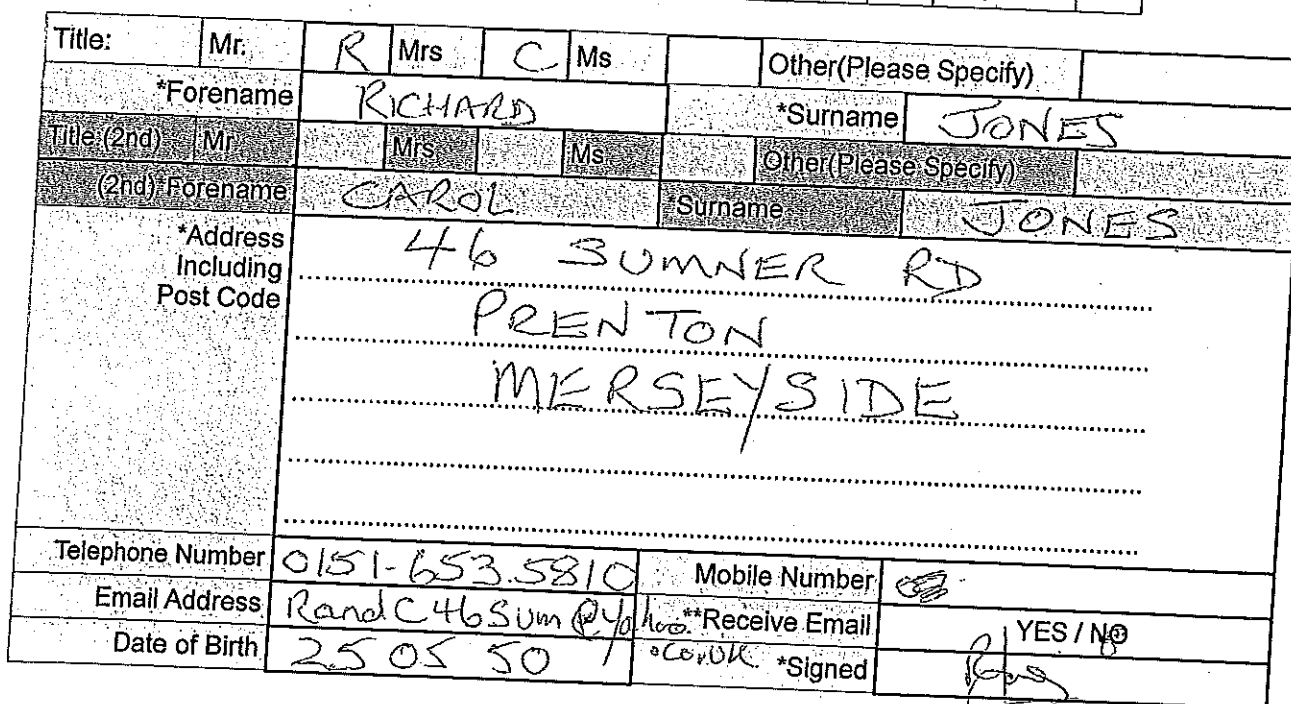 Title: Mr. R Mrs C Ms Other(Please Specify)
*Forename RICHARD *Surname JONES
Title (2nd) Mr Mrs Ms Other(Please Specify)
(2nd)*Forename CAROL *Surname JONES
*Address 46 SUMNER RD
Including
Post Code PRENTON
MERSEYSIDE
Telephone Number 0151-653.5810 Mobile Number
Email Address RandC46Sum@yahoo. **Receive Email YES / NO
Date of Birth 25 05 50 .co.uk *Signed